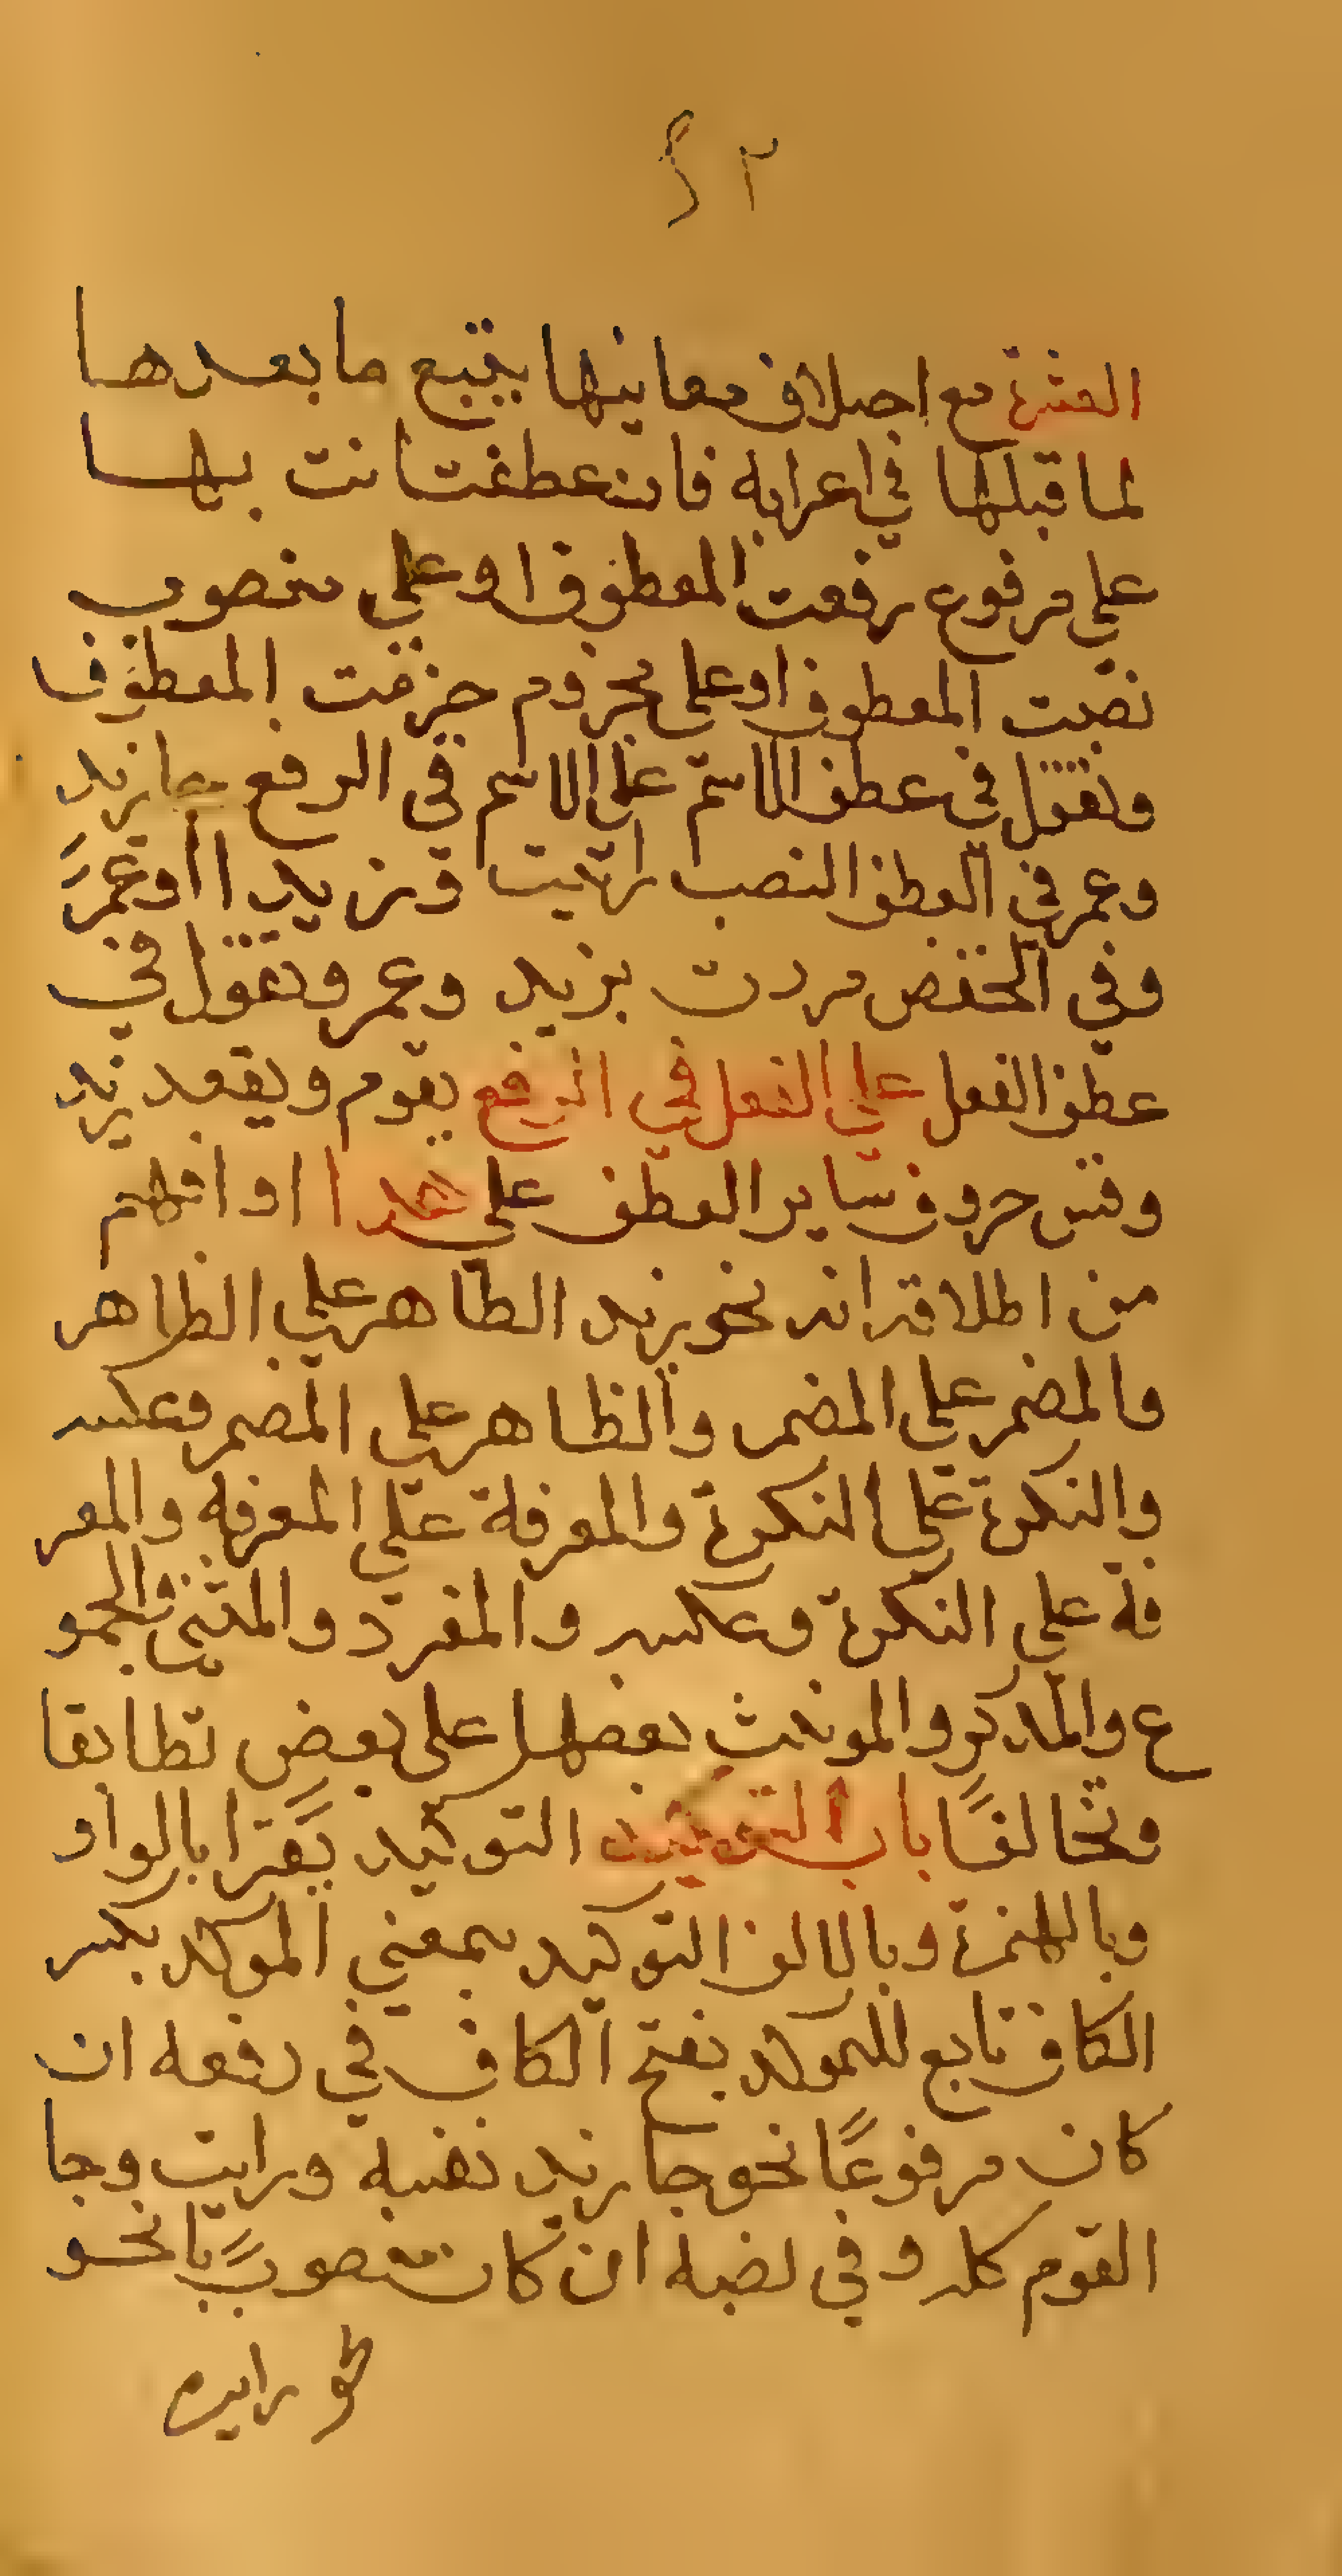 ٢٤
العشرة مع اختلاف معانيها يتبع ما بعدها
لما قبلها في اعرابه فان عطفت انت بها
على مرفوع رفعت المعطوف او على منصوب
نصبت المعطوف او على مجزوم جزمت المعطوف
وتقول في عطف الاسم على الاسم في الرفع جا زيد
وعمر في العطف النصب رايت وزيدا اوعمرً
وفي الخفض مررت بزيد وعمر وتقول في
عطف الفعل على الفعل في الرفع يقوم ويقعد زيد
وقس حروف ساير العطف على هدا او افهم
من اطلاقه انه نحو يزيد الظاهر على الظاهر
والمضمر علي المضمر والظاهر على المضمر وعكسه
والنكرة على النكرة والمعرفة علي المعرفه والمعر
فة على النكرة وعكسه والمفرد والمثنى والجمو
ع والمدكر والمونث بعضها على بعض تطابقا
وتخالفًا باب التوكيد التوكيد يقرا بالواو
وبالهمزة وبالالف التوكيد بمعني الموكد بكسر
الكاف تابع للموكد بفتح الكاف في رفعه ان
كان مرفوعًا نحو جا زيد نفسه ورايت وجا
القوم كله وفي نصبه ان كان منصوبًا نحو
نحو رايت